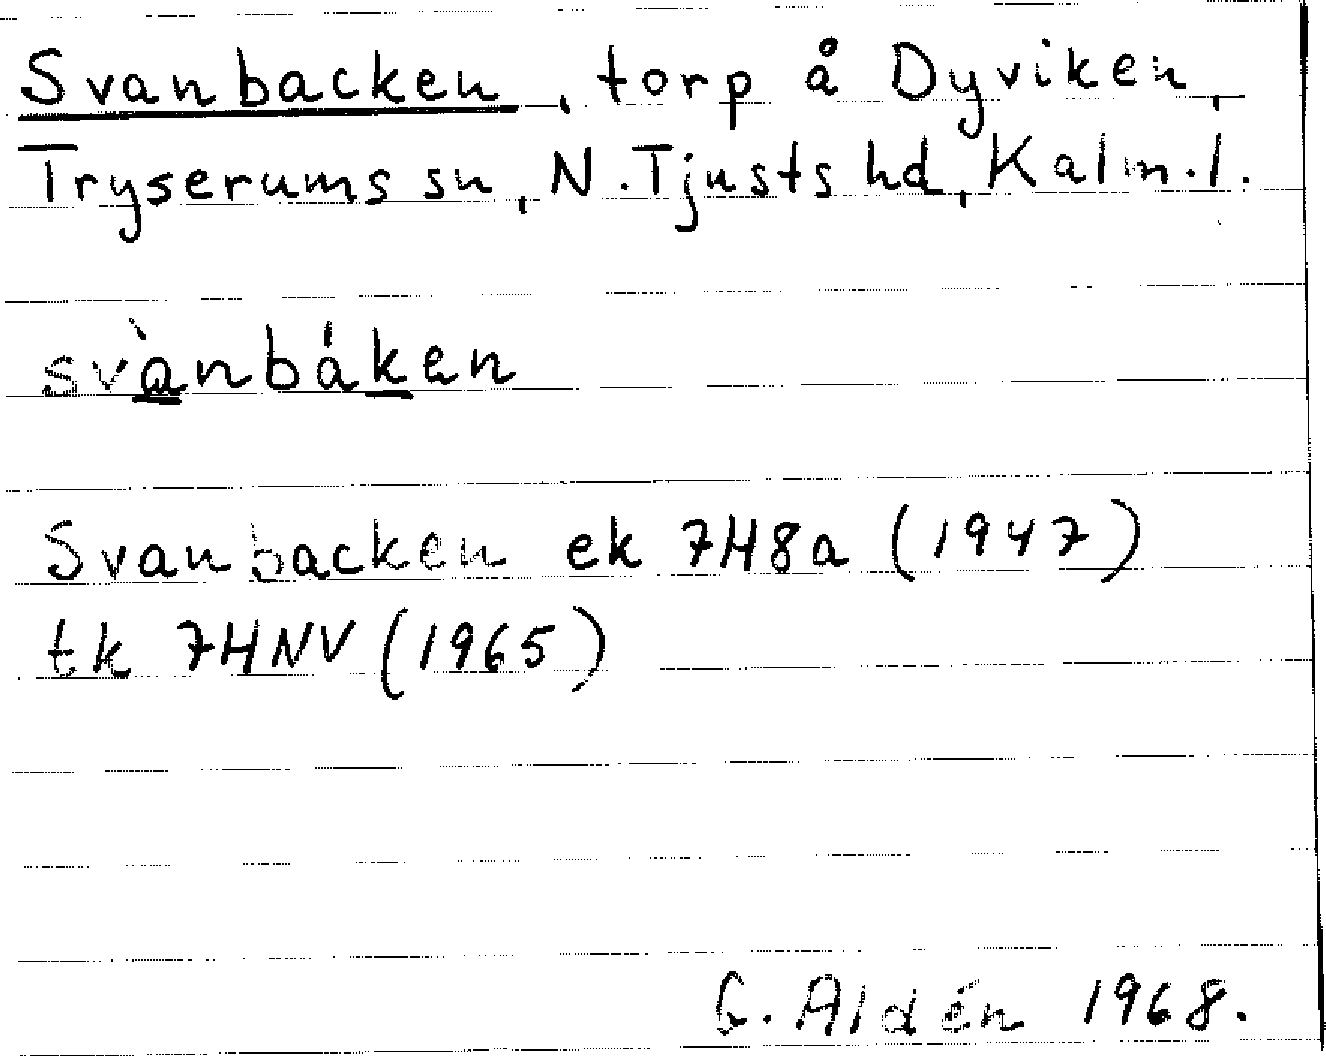 Svanbacken, torp å Dyviken,
Tryserums sn, N. Tjusts hd, Kalm. l.
svànbáken
Svanbacken ek 7H8a (1947)
tk 7HNV (1965)
G. Aldén 1968.